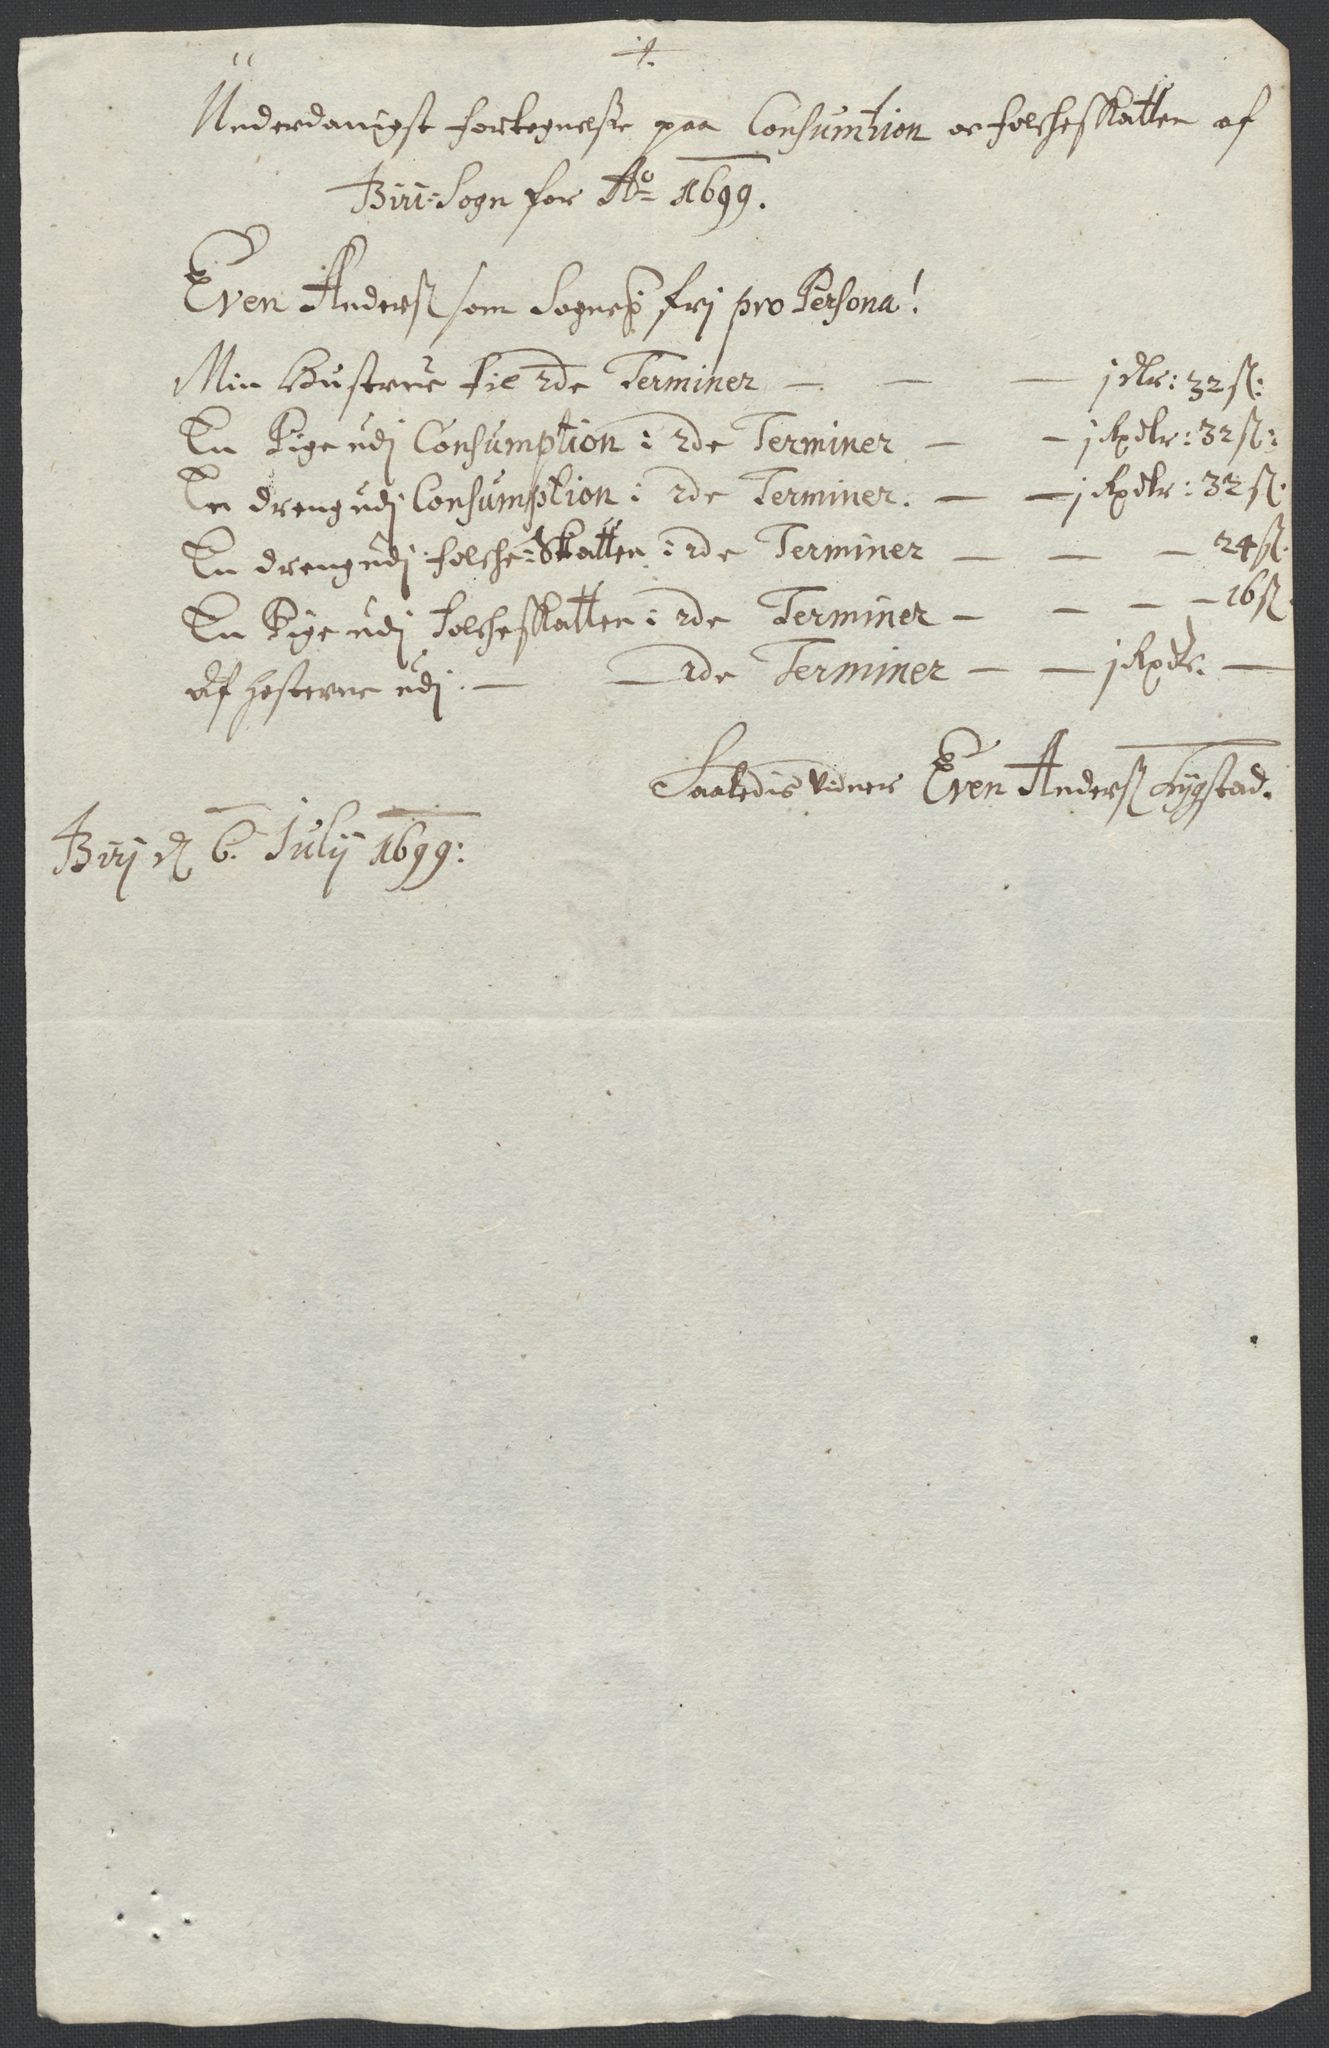 Underdanigst fortegnelse paa Consumtion oc folcheskatten af
Biri-Sogn for Ao 1699.
Even Anderß som Sognep frj pro Persona!
Min Hustrue til 2de Terminer — — — j dlr: 32 ß:
En Pige udj Consumption i 2de Terminer — — j Rxdlr: 32 ß:
En dreng udj Consumption i 2de Terminer. — — j Rxdlr: 32 ß.
En dreng udj folche-Skatten i 2de Terminer — — — 24 ß.
En Pige udj Folcheskatten i 2de Terminer — — — — 16 ß.
Af hesterne udj. — — 2de Terminer — — j Rxdr. —
Saaledis vidner Even Anderß Lygstad.
Birj d 6. Julij 1699: